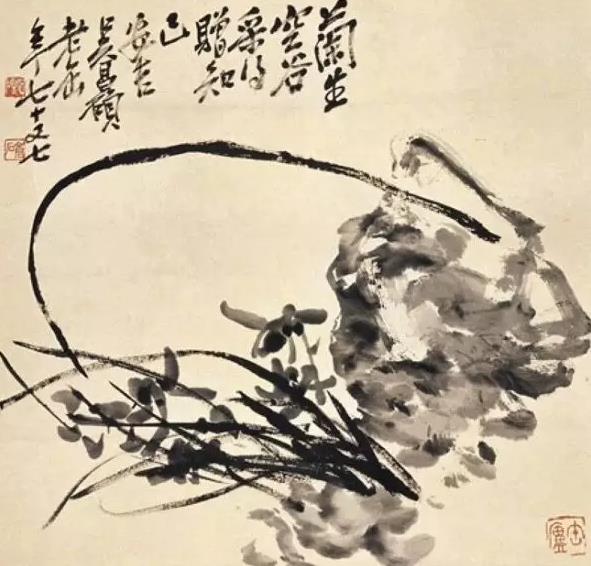 蘭生
空谷
采得
贈知
己
安吉
吳昌碩
老缶
年七十又七